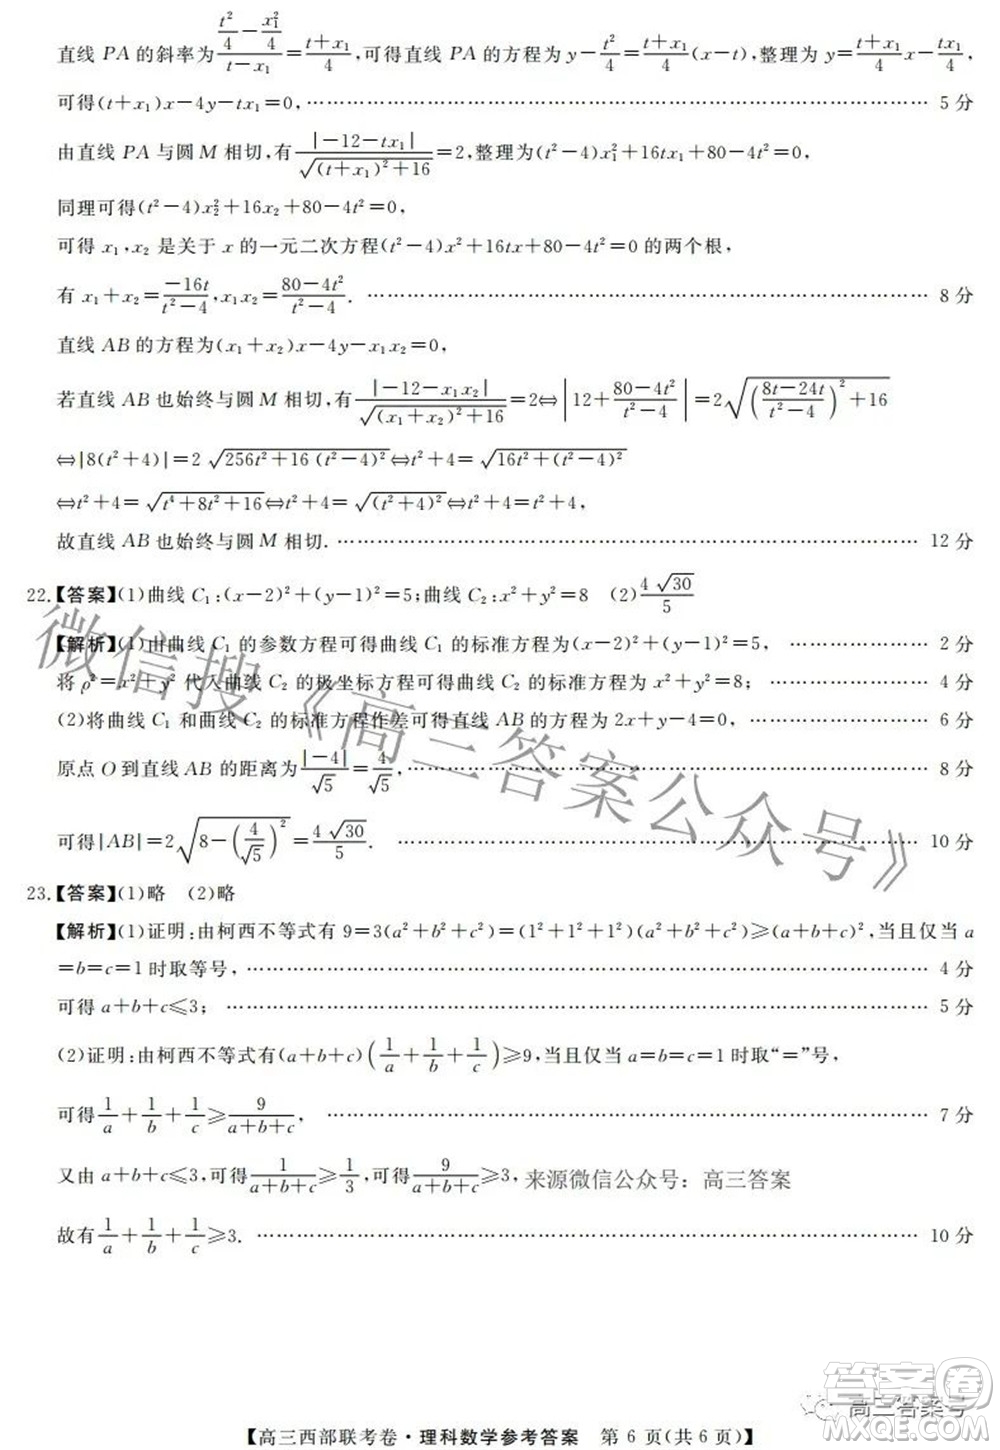 直线 PA 的斜率为 (t²/4 − x₁²/4)/(t−x₁) = (t+x₁)/4,可得直线 PA 的方程为 y − t²/4 = (t+x₁)/4 (x−t),整理为 y = (t+x₁)/4 x − tx₁/4,
可得(t+x₁)x−4y−tx₁=0, …… 5 分
由直线 PA 与圆 M 相切,有 |−12−tx₁|/√((t+x₁)²+16) = 2,整理为(t²−4)x₁²+16tx₁+80−4t²=0,
同理可得(t²−4)x₂²+16x₂+80−4t²=0,
可得 x₁,x₂ 是关于 x 的一元二次方程(t²−4)x²+16tx+80−4t²=0 的两个根,
有 x₁+x₂ = −16t/(t²−4), x₁x₂ = (80−4t²)/(t²−4). …… 8 分
直线 AB 的方程为(x₁+x₂)x−4y−x₁x₂=0,
若直线 AB 也始终与圆 M 相切,有 |−12−x₁x₂|/√((x₁+x₂)²+16) = 2⇔|12+(80−4t²)/(t²−4)| = 2√(((8t−24t)/(t²−4))²+16)
⇔|8(t²+4)|=2√(256t²+16(t²−4)²)⇔t²+4=√(16t²+(t²−4)²)
⇔t²+4=√(t⁴+8t²+16)⇔t²+4=√((t²+4)²)⇔t²+4=t²+4,
故直线 AB 也始终与圆 M 相切. …… 12 分
22.【答案】(1)曲线 C₁:(x−2)²+(y−1)²=5;曲线 C₂:x²+y²=8 (2)4√30/5
【解析】(1)由曲线 C₁ 的参数方程可得曲线 C₁ 的标准方程为(x−2)²+(y−1)²=5, …… 2 分
将 ρ²=x²+y² 代入曲线 C₂ 的极坐标方程可得曲线 C₂ 的标准方程为 x²+y²=8; …… 4 分
(2)将曲线 C₁ 和曲线 C₂ 的标准方程作差可得直线 AB 的方程为 2x+y−4=0, …… 6 分
原点 O 到直线 AB 的距离为 |−4|/√5 = 4/√5, …… 8 分
可得|AB|=2√(8−(4/√5)²) = 4√30/5. …… 10 分
23.【答案】(1)略 (2)略
【解析】(1)证明:由柯西不等式有 9=3(a²+b²+c²)=(1²+1²+1²)(a²+b²+c²)≥(a+b+c)²,当且仅当 a
=b=c=1 时取等号, …… 4 分
可得 a+b+c≤3; …… 5 分
(2)证明:由柯西不等式有(a+b+c)(1/a+1/b+1/c)≥9,当且仅当 a=b=c=1 时取“=”号,
可得 1/a+1/b+1/c≥9/(a+b+c), …… 7 分
又由 a+b+c≤3,可得 1/(a+b+c)≥1/3,可得 9/(a+b+c)≥3, 来源微信公众号:高三答案
故有 1/a+1/b+1/c≥3. …… 10 分
微信搜《高三答案公众号》
高三答案号
答案圈
MXQE.COM
【高三西部联考卷·理科数学参考答案 第 6 页(共 6 页)】